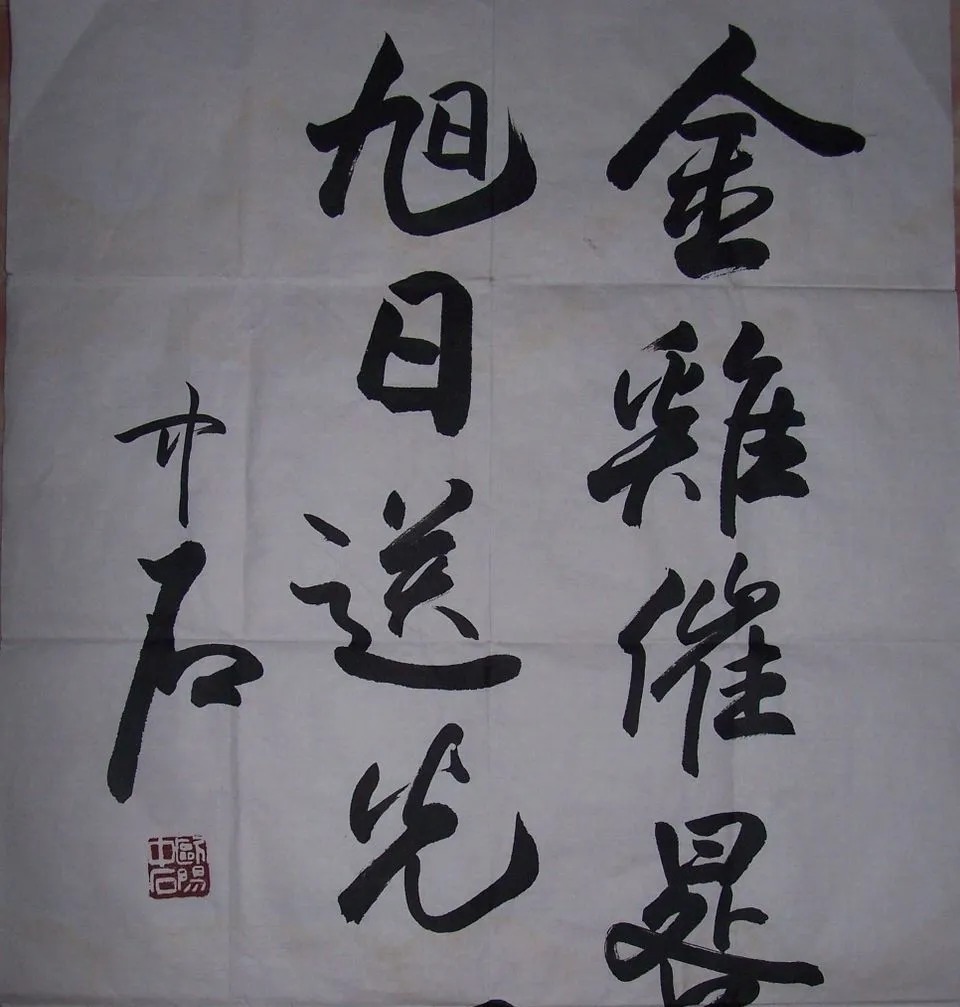 金雞催晷
旭日送光
中石
歐陽
中石